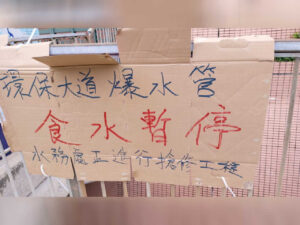 環保大道爆水管
食水暫停
水務處正進行搶修工程